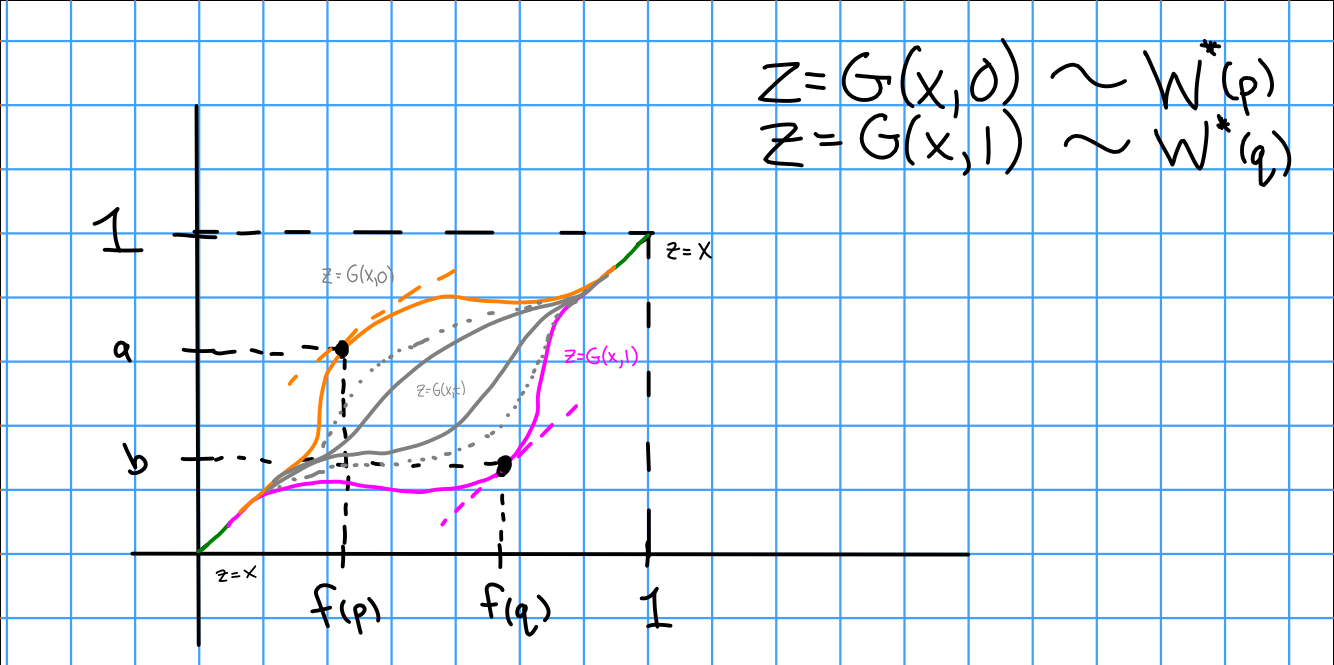 Z=G(x,0) ~ W*(p)
Z=G(x,1) ~ W*(q)
1
z=x
z=G(x,0)
a
z=G(x,1)
z=G(x,t)
b
z=x
f(p)
f(q)
1